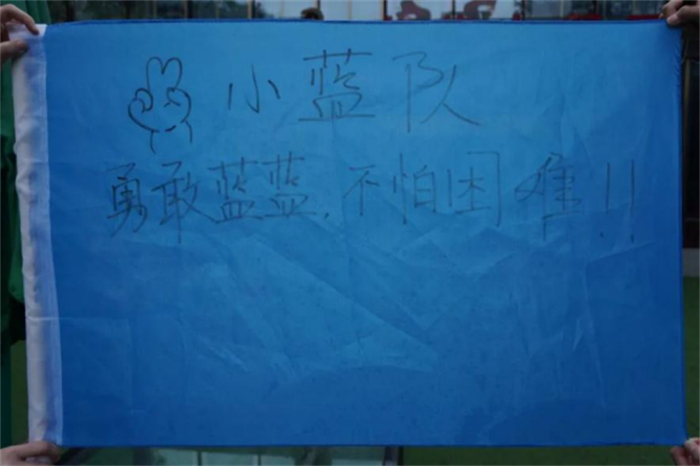 小蓝队
勇敢蓝蓝，不怕困难！！